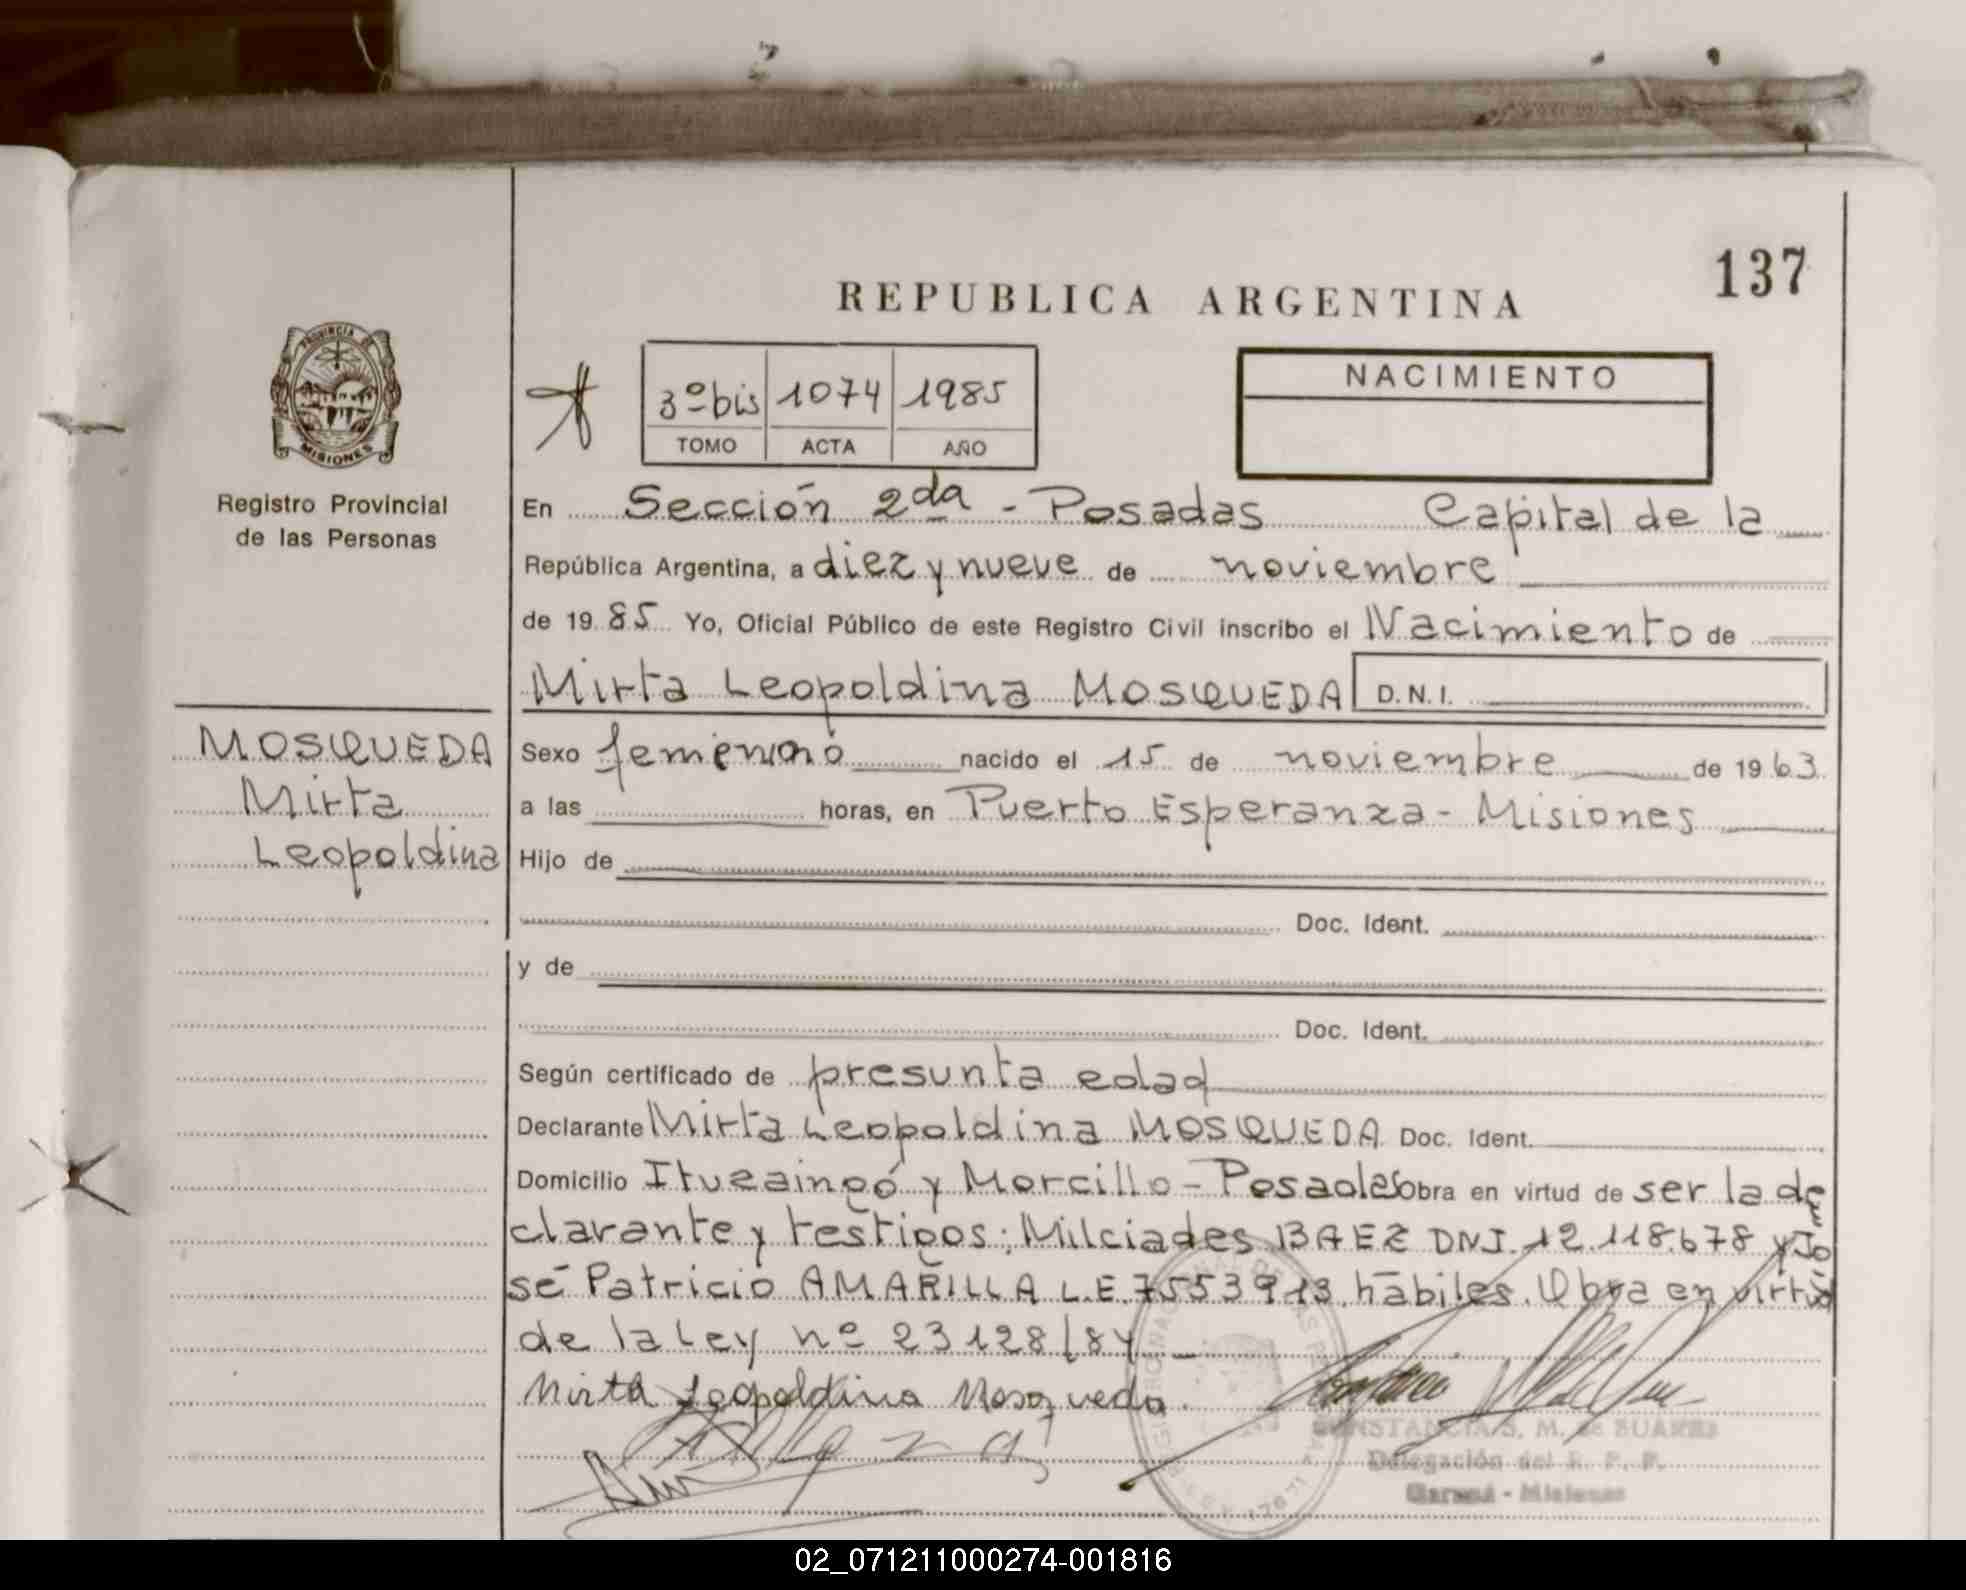 137
REPUBLICA ARGENTINA
PROVINCIA DE
MISIONES
Registro Provincial
de las Personas
3º bis 1074 1985
TOMO ACTA AÑO
NACIMIENTO
En Sección 2da - Posadas Capital de la
República Argentina, a diez y nueve de noviembre
de 19 85 Yo, Oficial Público de este Registro Civil inscribo el Nacimiento de
Mirta Leopoldina MOSQUEDA D.N.I.
MOSQUEDA
Mirta
Leopoldina
Sexo femenino nacido el 15 de noviembre de 19 63
a las horas, en Puerto Esperanza - Misiones
Hijo de
Doc. Ident.
y de
Doc. Ident.
Según certificado de presunta edad
Declarante Mirta Leopoldina MOSQUEDA Doc. Ident.
Domicilio Ituzaingó y Morcillo - Posadas Obra en virtud de ser la de
clarante y testigos: Milciades BAEZ DNI. 12.118.678 y Jo
sé Patricio AMARILLA L.E. 7553913. hábiles. Obra en virtud
de la Ley nº 23128/84
Mirta Leopoldina Mosqueda.
CONSTANCIA S. M. de SUARES
Delegación del R. P. P.
- Misiones
02_071211000274-001816